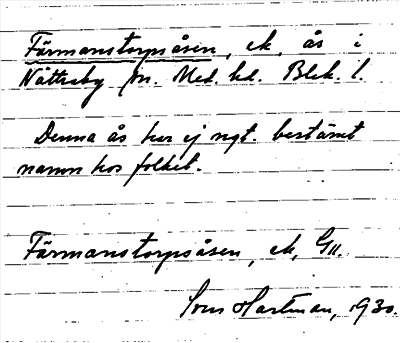 Färmanstorpsåsen, ek, ås i
Nättraby sn. Med. hd. Blek. l.
Denna ås har ej ngt. bestämt
namn hos folket.
Färmanstorpsåsen, ek, G11.
Hartman, 1930.